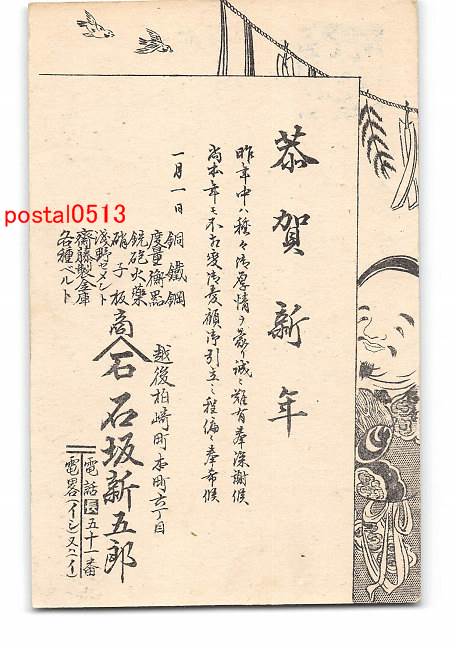 恭賀新年
昨年中ハ種々御厚情ヲ蒙リ誠ニ難有奉深謝候
尚本年モ不相変御愛顧御引立之程偏ニ奉希候
一月一日
銅鐵鋼
度量衡器
銃砲火薬
硝子板
浅野セメント
齋藤製金庫
各種ベルト
商
石
越後柏崎町本町六丁目
石坂新五郎
電話長五十一番
電畧(イシ又ハイ)
postal0513